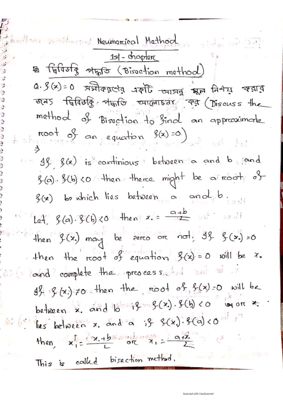 Neumarical Method
1st - chapter
দ্বিবিভক্তি পদ্ধতি (Bisection method)
Q. f(x)=0 সমীকরণের একটি আসন্ন মূল নির্ণয় করার
জন্য দ্বিবিভক্তি পদ্ধতি আলোচনা কর (Discuss the
method of Bisection to find an approximate
root of an equation f(x)=0)
If f(x) is continious between a and b and
f(a).f(b)<0 then there might be a root of
f(x) which lies between a and b.
Let, f(a).f(b)<0 then x₀ = a+b/2
then f(x₀) may be zero or not. If f(x₀)=0
then the root of equation f(x)=0 will be x₀
and complete the process.
If f(x₀)≠0 then the root of f(x)=0 will be
between x₀ and b if f(x₀).f(b)<0 or x₀
lies between x₀ and a if f(x₀).f(a)<0
then, x₁ = x₀+b/2 or x₁ = a+x₀/2
This is called bisection method.